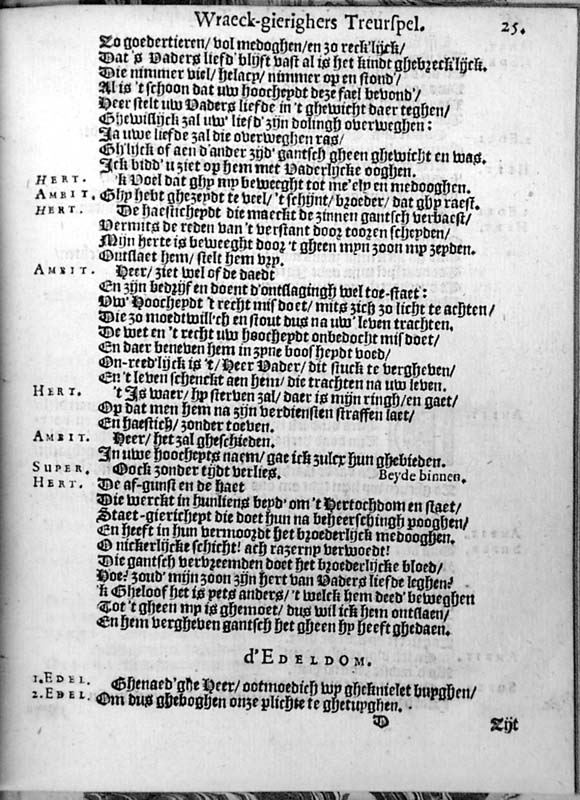 Wraeck-gierighers Treurspel. 25.
Zo goedertieren/ vol medoghen/ en zo reck'lijck/
Dat 's Vaders liefd' blijft vast al is het kindt ghebreck'lijck.
Die nimmer viel/ helacy/ nimmer op en stond'/
Al is 't schoon dat uw hoocheydt deze fael bevond'/
Heer stelt uw Vaders liefde in 't ghewicht daer teghen/
Ghewislijck zal uw' liefd' zijn dolingh overweghen:
Ja uwe liefde zal die overweghen ras/
Gh'lijck of aen d'ander zijd' gantsch gheen ghewicht en was.
Ick bidd' u ziet op hem met Vaderlijcke ooghen.
HERT. 'k Voel dat ghy my beweeght tot me'ely en medooghen.
AMBIT. Ghy hebt ghezeydt te veel/ 't schijnt/ broeder/ dat ghy raest.
HERT. De haesticheydt die maeckt de zinnen gantsch verbaest/
Vermits de reden van 't verstant door tooren scheyden/
Mijn herte is beweeght door 't gheen myn zoon my zeyden.
Ontslaet hem/ stelt hem vry.
AMBIT. Heer/ ziet wel of de daedt
En zijn bedrijf en doent d'ontslagingh wel toe-staet:
Uw' Hoocheydt 't recht mis doet/ mits zich zo licht te achten/
Die zo moedtwill'ch en stout dus na uw' leven trachten.
De wet en 't recht uw hoocheydt onbedocht mis doet/
En daer beneven hem in zyne boosheydt voed/
On-reed'lijck is 't/ Heer Vader/ dit stuck te vergheven/
En 't leven schenckt aen hem/ die trachten na uw leven.
HERT. 't Is waer/ hy sterven zal/ daer is mijn ringh/ en gaet/
Op dat men hem na zijn verdiensten straffen laet/
En haestich/ zonder toeven.
AMBIT. Heer/ het zal gheschieden.
In uwe hoocheyts naem/ gae ick zulcx hun ghebieden.
SUPER. Oock zonder tijdt verlies. Beyde binnen.
HERT. De af-gunst en de haet
Die werckt in hunliens beyd' om 't Hertochdom en staet/
Staet-giericheyt die doet hun na beheerschingh pooghen/
En heeft in hun vermoordt het broederlijck medooghen.
O nickerlijcke schicht! ach razerny verwoedt!
Die gantsch vervreemden doet het broederlijcke bloed/
Hoe? zoud' mijn zoon zijn hert van Vaders liefde leghen?
'k Gheloof het is yets anders/ 't welck hem deed' beweghen
Tot 't gheen my is ghemoet/ dus wil ick hem ontslaen/
En hem vergheven gantsch het gheen hy heeft ghedaen.
d'EDELDOM.
1. EDEL. Ghenaed'ghe Heer/ ootmoedich wy gheknielet buyghen/
2. EDEL. Om dus gheboghen onze plichte te ghetuyghen.
D Zijt